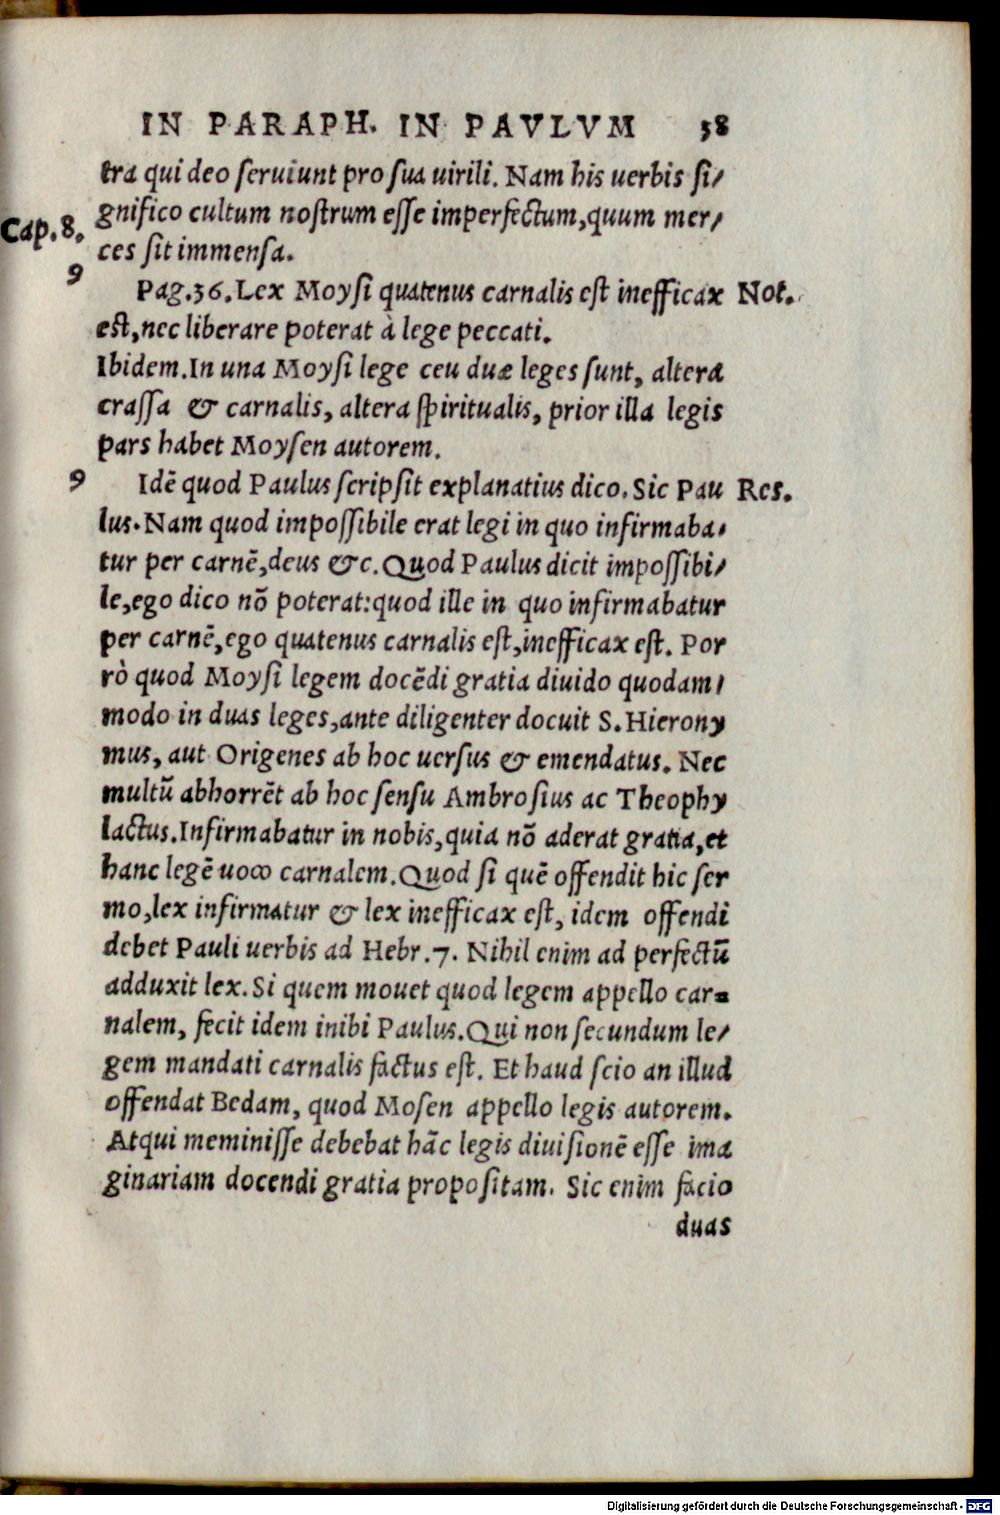 IN PARAPH. IN PAVLVM 58
tra qui deo seruiunt pro sua uirili. Nam his uerbis si/
gnifico cultum nostrum esse imperfectum, quum mer/
Cap. 8.
ces sit immensa.
9
Pag. 36. Lex Moysi quatenus carnalis est inefficax Not.
est, nec liberare poterat à lege peccati.
Ibidem. In una Moysi lege ceu duæ leges sunt, altera
crassa & carnalis, altera spiritualis, prior illa legis
pars habet Moysen autorem.
9 Idē quod Paulus scripsit explanatius dico. Sic Pau Res.
lus. Nam quod impossibile erat legi in quo infirmaba/
tur per carnē, deus &c. Quod Paulus dicit impossibi/
le, ego dico nō poterat: quod ille in quo infirmabatur
per carnē, ego quatenus carnalis est, inefficax est. Por
rò quod Moysi legem docēdi gratia diuido quodam/
modo in duas leges, ante diligenter docuit S. Hierony
mus, aut Origenes ab hoc uersus & emendatus. Nec
multū abhorrēt ab hoc sensu Ambrosius ac Theophy
lactus. Infirmabatur in nobis, quia nō aderat gratia, et
hanc legē uoco carnalem. Quod si quē offendit hic ser
mo, lex infirmatur & lex inefficax est, idem offendi
debet Pauli uerbis ad Hebr. 7. Nihil enim ad perfectū
adduxit lex. Si quem mouet quod legem appello car-
nalem, fecit idem inibi Paulus. Qui non secundum le/
gem mandati carnalis factus est. Et haud scio an illud
offendat Bedam, quod Mosen appello legis autorem.
Atqui meminisse debebat hāc legis diuisionē esse ima
ginariam docendi gratia propositam. Sic enim facio
duas
Digitalisierung gefördert durch die Deutsche Forschungsgemeinschaft - DFG